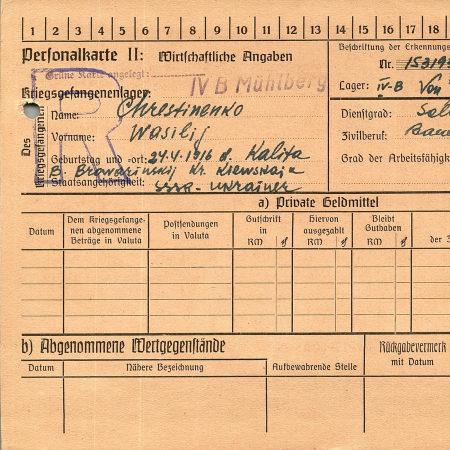 1 2 3 4 5 6 7 8 9 10 11 12 13 14 15 16 17 18
Personalkarte II: Wirtschaftliche Angaben
Beschriftung der Erkennungs
Grüne Karte angelegt:
Nr. 15319
IV B Mühlberg
Kriegsgefangenenlager:
Lager: IV-B Von
Des Kriegsgefangenen
Name: Chrestinenko
Dienstgrad: Sol
Vorname: Wasilij
Zivilberuf: Bau
Geburtstag und -ort: 24.4.1916 d. Kalita
Grad der Arbeitsfähigk
B. Browarinskij Kr. Kiewskaja
Staatsangehörigkeit: SSSR - Ukrainer
R
a) Private Geldmittel
Datum
Dem Kriegsgefangenen abgenommene Beträge in Valuta
Postsendungen in Valuta
Gutschrift in RM ₰
Hiervon ausgezahlt RM ₰
Bleibt Guthaben RM ₰
der Z
b) Abgenommene Wertgegenstände
Rückgabevermerk mit Datum
Datum
Nähere Bezeichnung
Aufbewahrende Stelle